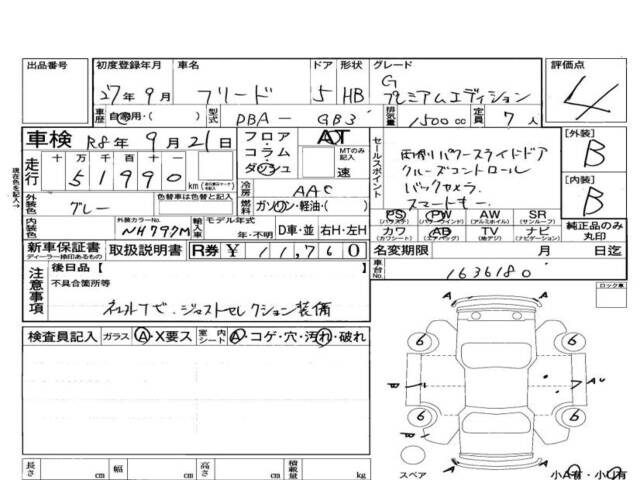 出品番号 初度登録年月 車名 ドア 形状 グレード 評価点
27年9月 フリード 5 HB G プレミアムエディション 4
車歴 自家用・( ) 型式 DBA-GB3 排気量 1500cc 定員 7人
車検 R8年9月21日 フロア・コラム・ダッシュ AT
MTのみ記入 速
走行 十 万 千 百 十 一
51990 km
冷房 AAC
セールスポイント 両側パワースライドドア
クルーズコントロール
バックカメラ
スマートキー
[外装] B
[内装] B
現在色を記入→
外装色 グレー 色替車は色替と記入 燃料 ガソリン・軽油・( )
PS (パワステ) PW (パワーウインド) AW (アルミホイル) SR (サンルーフ)
内装色 外装カラーNo. NH797M 輸入車 モデル年式 年・不明 D車・並 右H・左H
カワ (カワシート) AB (エアバッグ) TV (地デジ) ナビ (ナビゲーション)
純正品のみ丸印
新車保証書 ディーラー捺印あるもの 取扱説明書 R券 ¥ 11,760 名変期限 月 日迄
注意事項 後日品【 】
車台No. 1636180
不具合箇所等
ジャストセレクション装備
ロック車
検査員記入 ガラス A・X要ス 室内シート A・コゲ・穴・汚れ・破れ
A
6 6
B A
6 6
スペア
小A有・小U有
長さ cm 幅 cm 高さ cm 積載量 kg